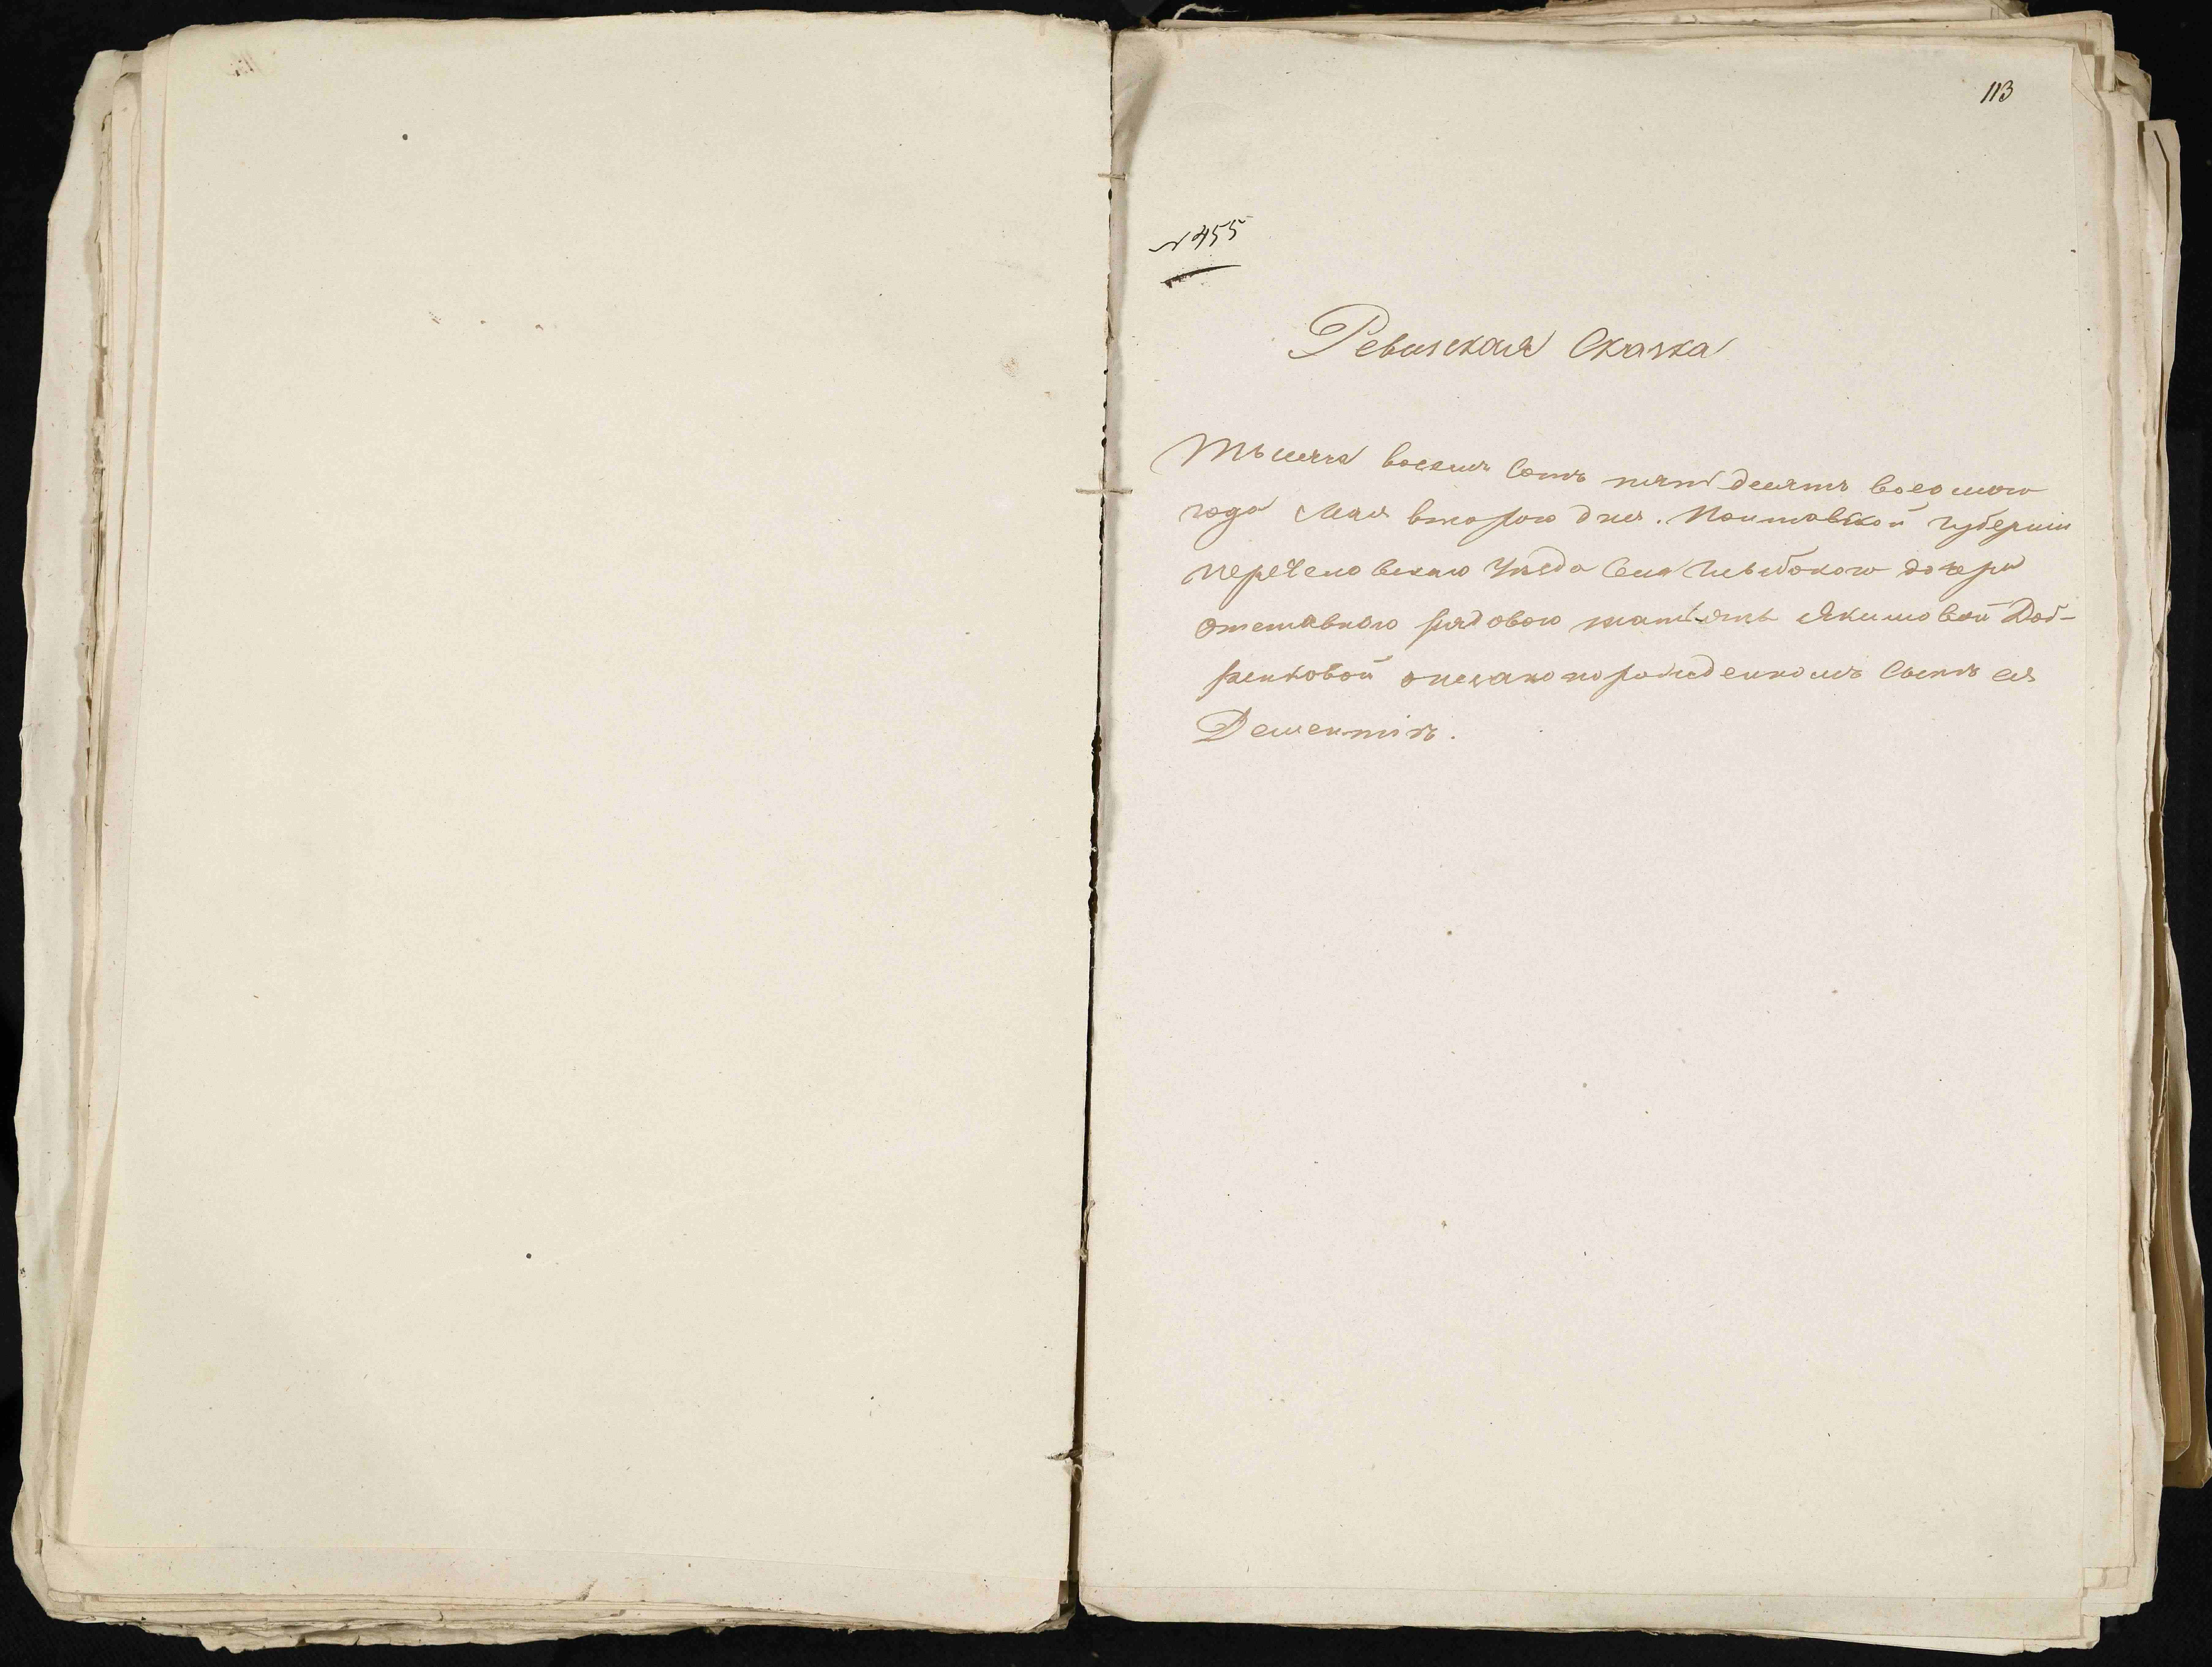 113
№ 455
Ревизская Сказка
Тысяча восемь Сотъ пятдесятъ восмого
года Мая второго дня. Полтавской губерніи
Переяславскаго Уезда Села дочери
отставного рядового Якимовой Доб-
о незаконорожденномъ Сынѣ ея
Дементіѣ.